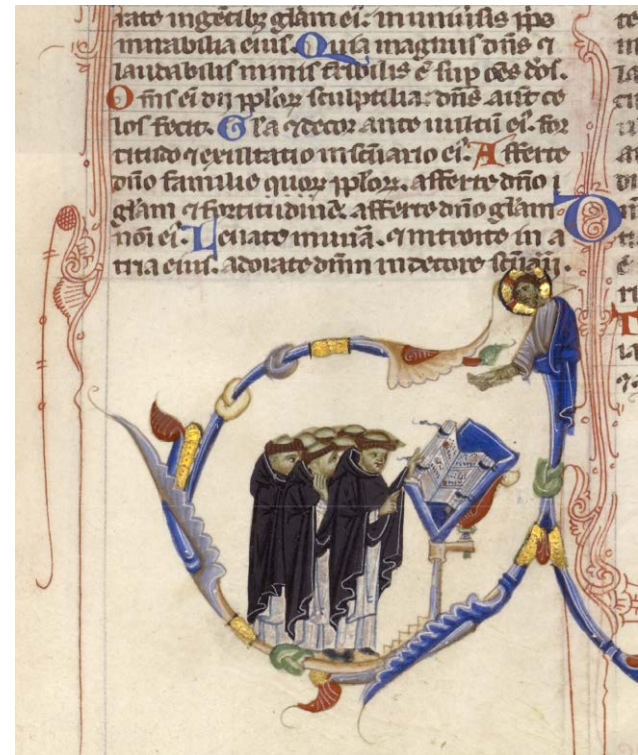 rate ingētibȝ gl̄am ei⁹. in uniūsis ppo
mirabilia eius. Quia magnus dn̄s ⁊
laudabilis nimis t̄ribilis ē suꝑ oēs dōs.
Oīns ei dij ppl̄oꝝ sculptilia: dn̄s aūt ce
los fecit. Gl̄a ⁊ decor ante uultū ei⁹. for
titudo ⁊ exultatio in sc̄uario ei⁹. Afferte
dn̄o familie quoꝝ ppl̄oꝝ. afferte dn̄o i
gl̄am ⁊ fortitudinē. afferte dn̄o gl̄am
nōi ei⁹. Leuate munā. ⁊ introite in a
tria eius. adorate dn̄m in decore sc̄uarij.